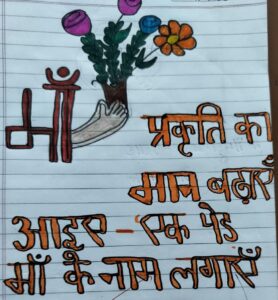 माँ
प्रकृति का
मान बढ़ाएँ
आइए - एक पेड़
माँ के नाम लगाएँ